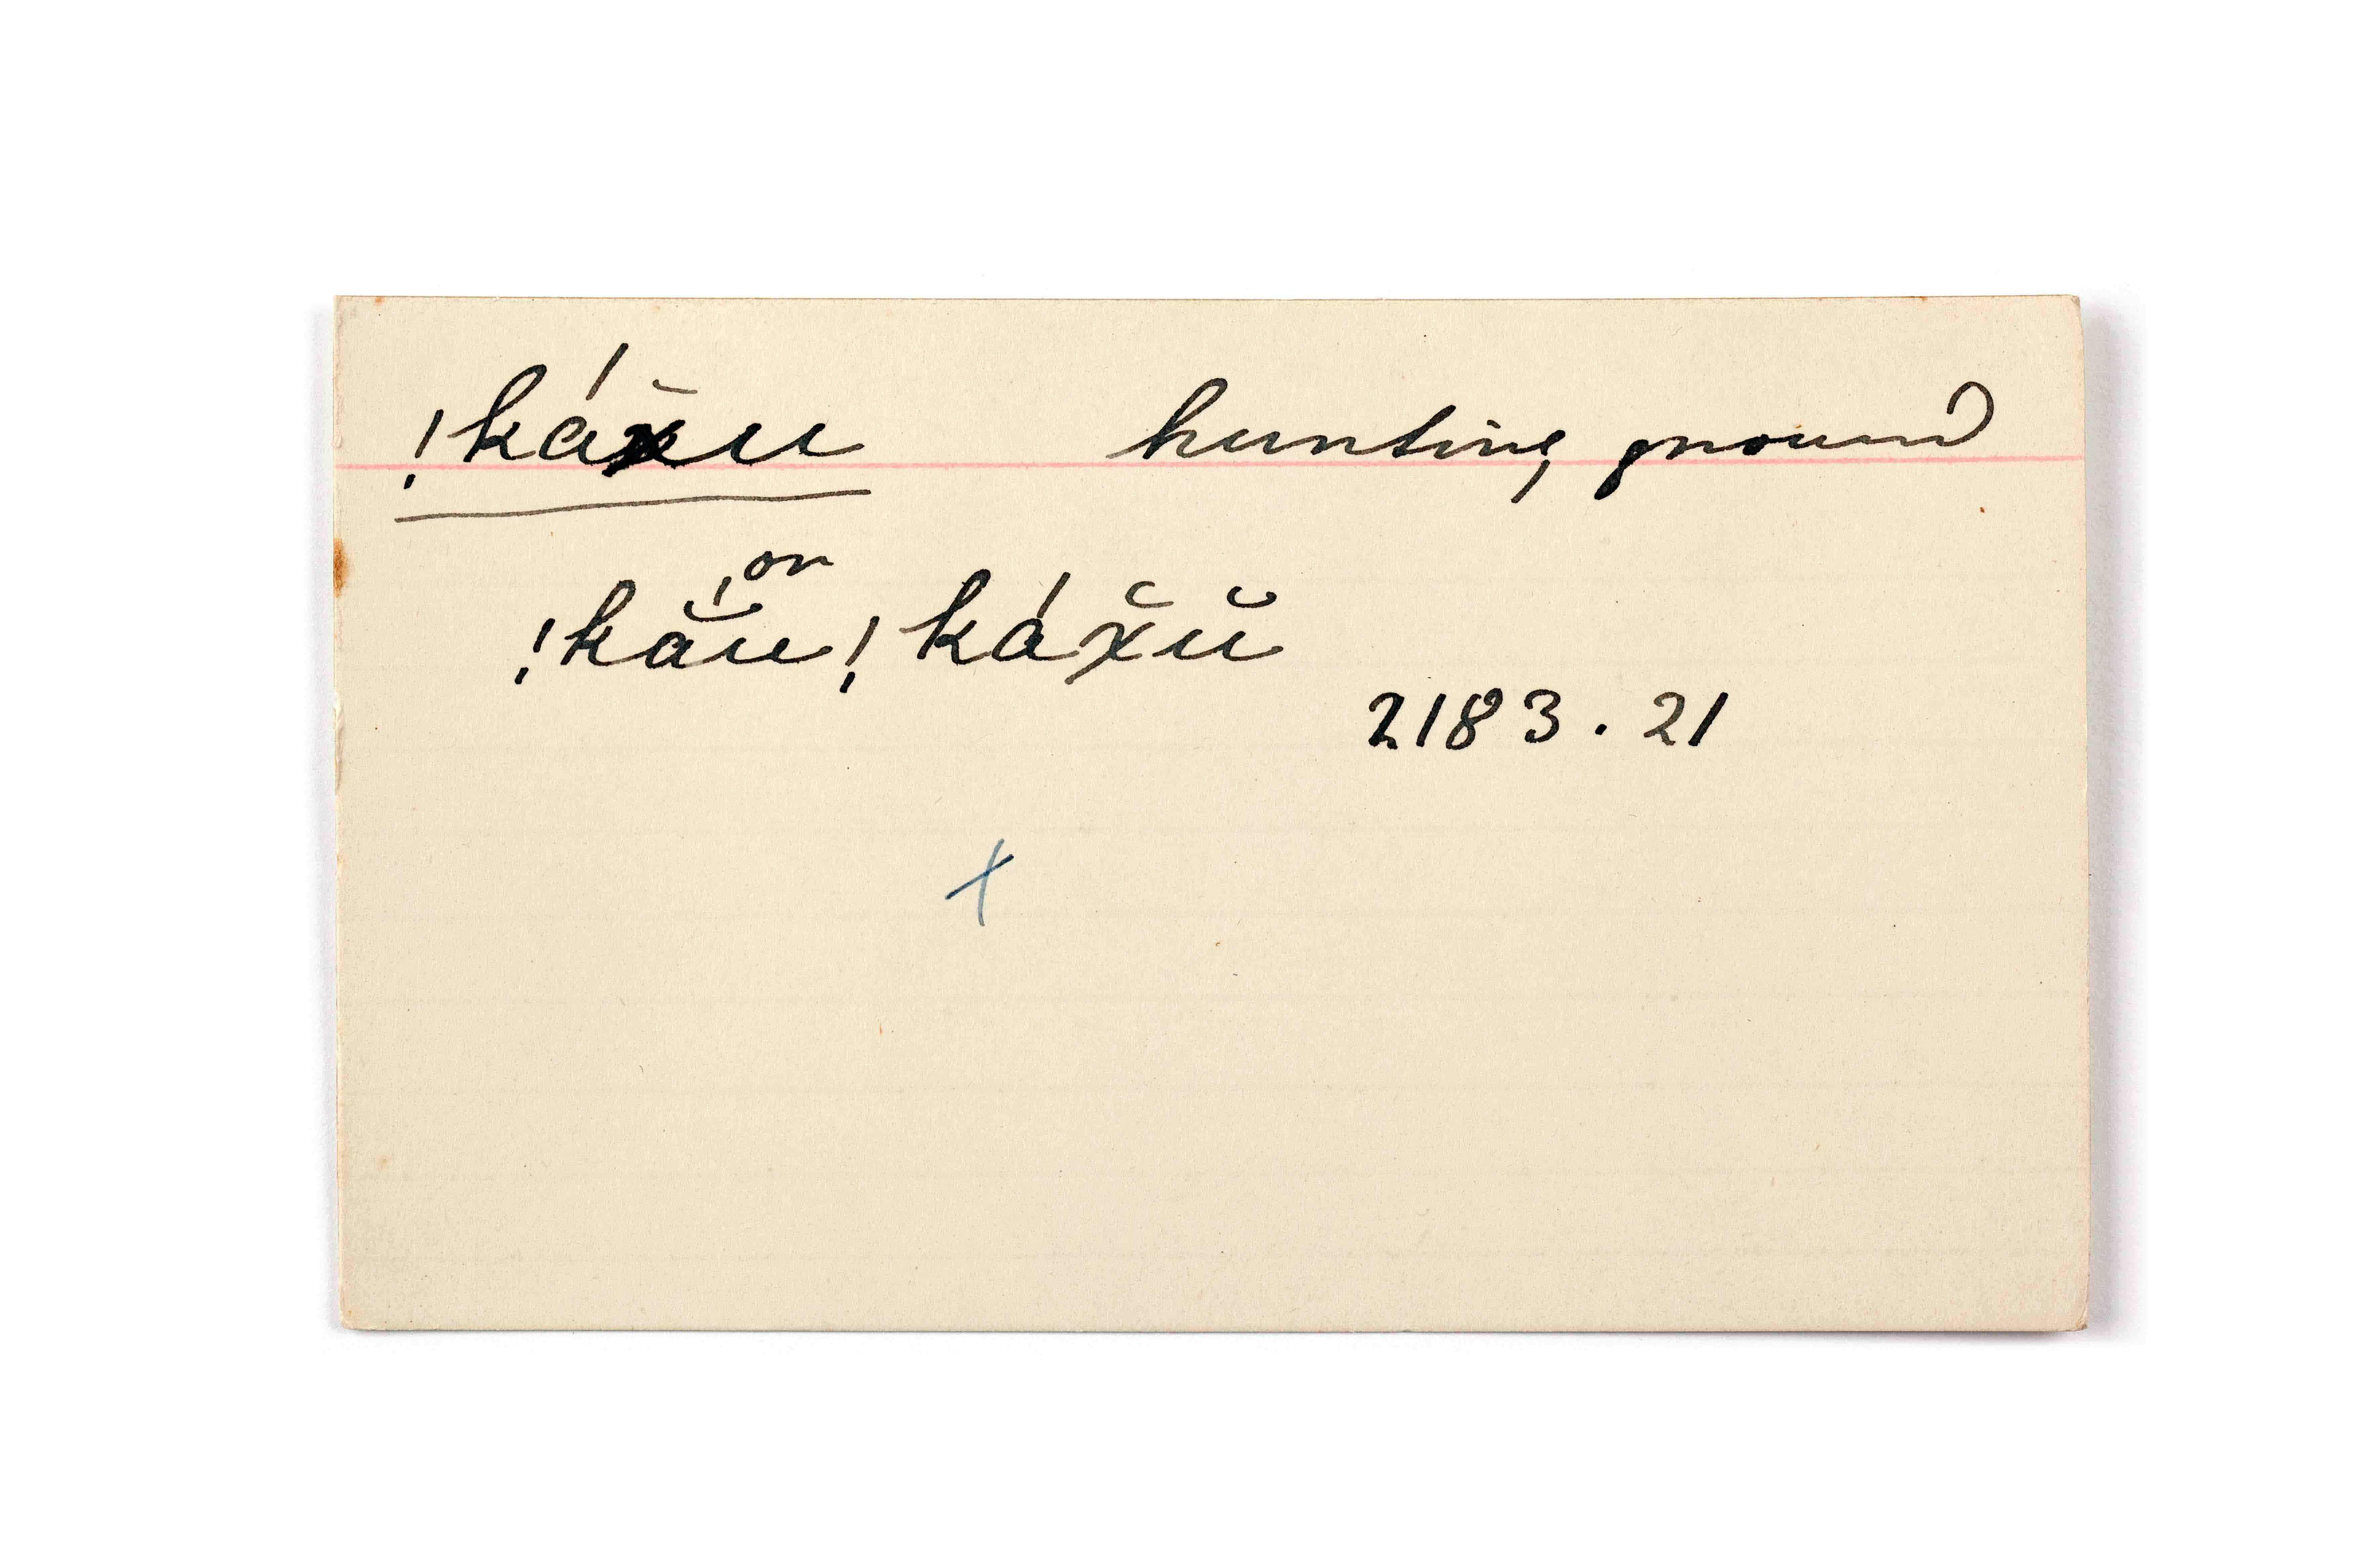 !káx̆u hunting ground
or
!kắu !káx̆ŭ
2183.21
x